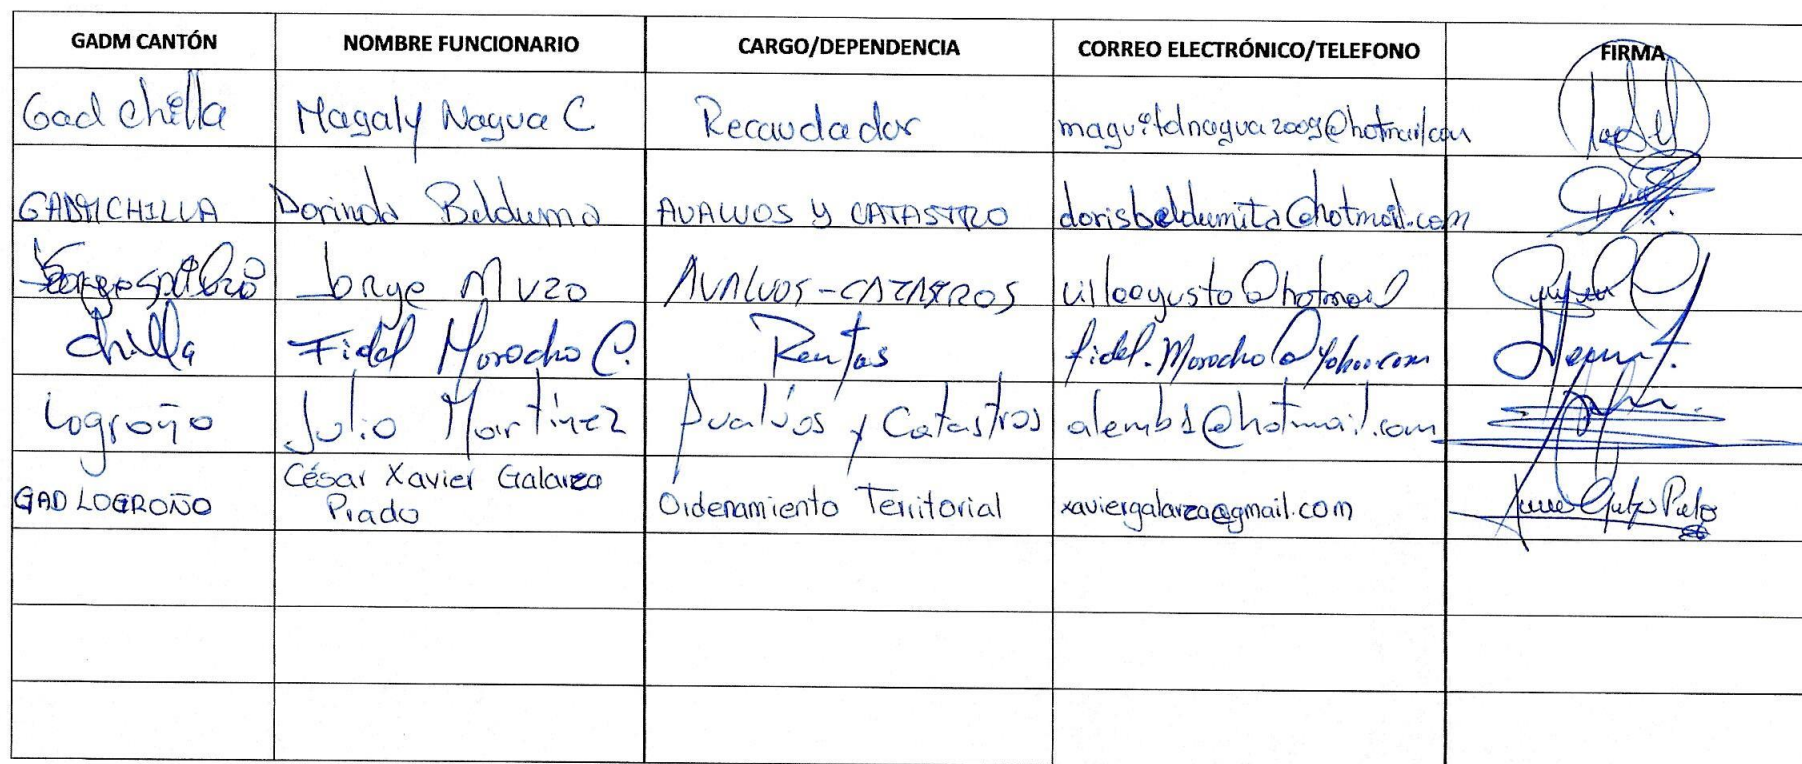 GADM CANTÓN NOMBRE FUNCIONARIO CARGO/DEPENDENCIA CORREO ELECTRÓNICO/TELEFONO FIRMA
Gad Chilla Magaly Nagua C Recaudador
GADM CHILLA Dorinda Belduma AVALUOS Y CATASTRO dorisbeldumita@hotmail.com
Jorge Muzo AVALUOS-CATASTROS
Chilla Fidel Morocho C. Rentas fidel.Morocho@yahoo.com
Logroño Julio Martínez Avalúos y Catastros alemb1@hotmail.com
César Xavier Galarza
GAD LOGROÑO Prado Ordenamiento Territorial xaviergalarza@gmail.com